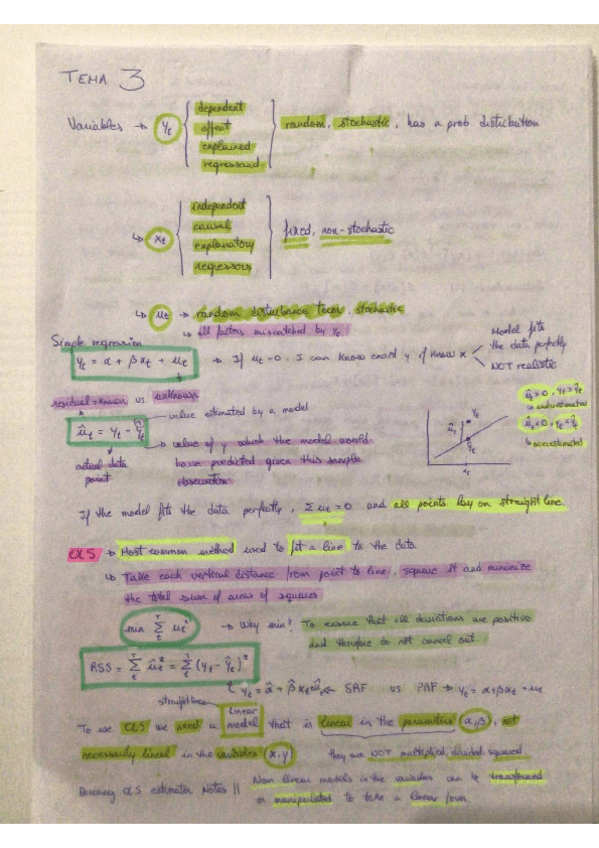 TEMA 3
Variables → yt { dependent
effect
explained
regressand } random, stochastic, has a prob. distribution
↳ xt { independent
causal
explanatory
regressors } fixed, non-stochastic
↳ ut → random disturbance term, stochastic
↳ all factors mismatched by yt
Simple regression
yt = α + β xt + ut → If ut = 0, I can know exact y if know x
Model fits
the data perfectly
NOT realistic
residual = known vs unknown
ût = yt - ŷt
value estimated by a model
→ value of y which the model would
have predicted given this sample
observation
actual data
point
ût > 0, yt > ŷt
↳ underestimated
ût < 0, yt < ŷt
↳ overestimated
ût yt
ŷt
xt
If the model fits the data perfectly, Σ ut = 0 and all points lay on straight line
OLS → Most common method used to fit a line to the data
↳ Take each vertical distance from point to line, square it and minimize
the total sum of areas of squares
min Σ ut² → Why min? To ensure that all deviations are positive
and therefore to not cancel out.
RSS = Σ ût² = Σ (yt - ŷt)²
yt = α̂ + β̂ xt + ût → SRF vs PRF → yt = α + βxt + ut
straight lines
To use OLS we need a linear model that is linear in the parameters (α, β), not
necessarily lineal in the variables (x, y) they are NOT multiplied, divided, squared
Deriving OLS estimator Notes || Non linear models in the variables can be transformed
or manipulated to take a linear form.